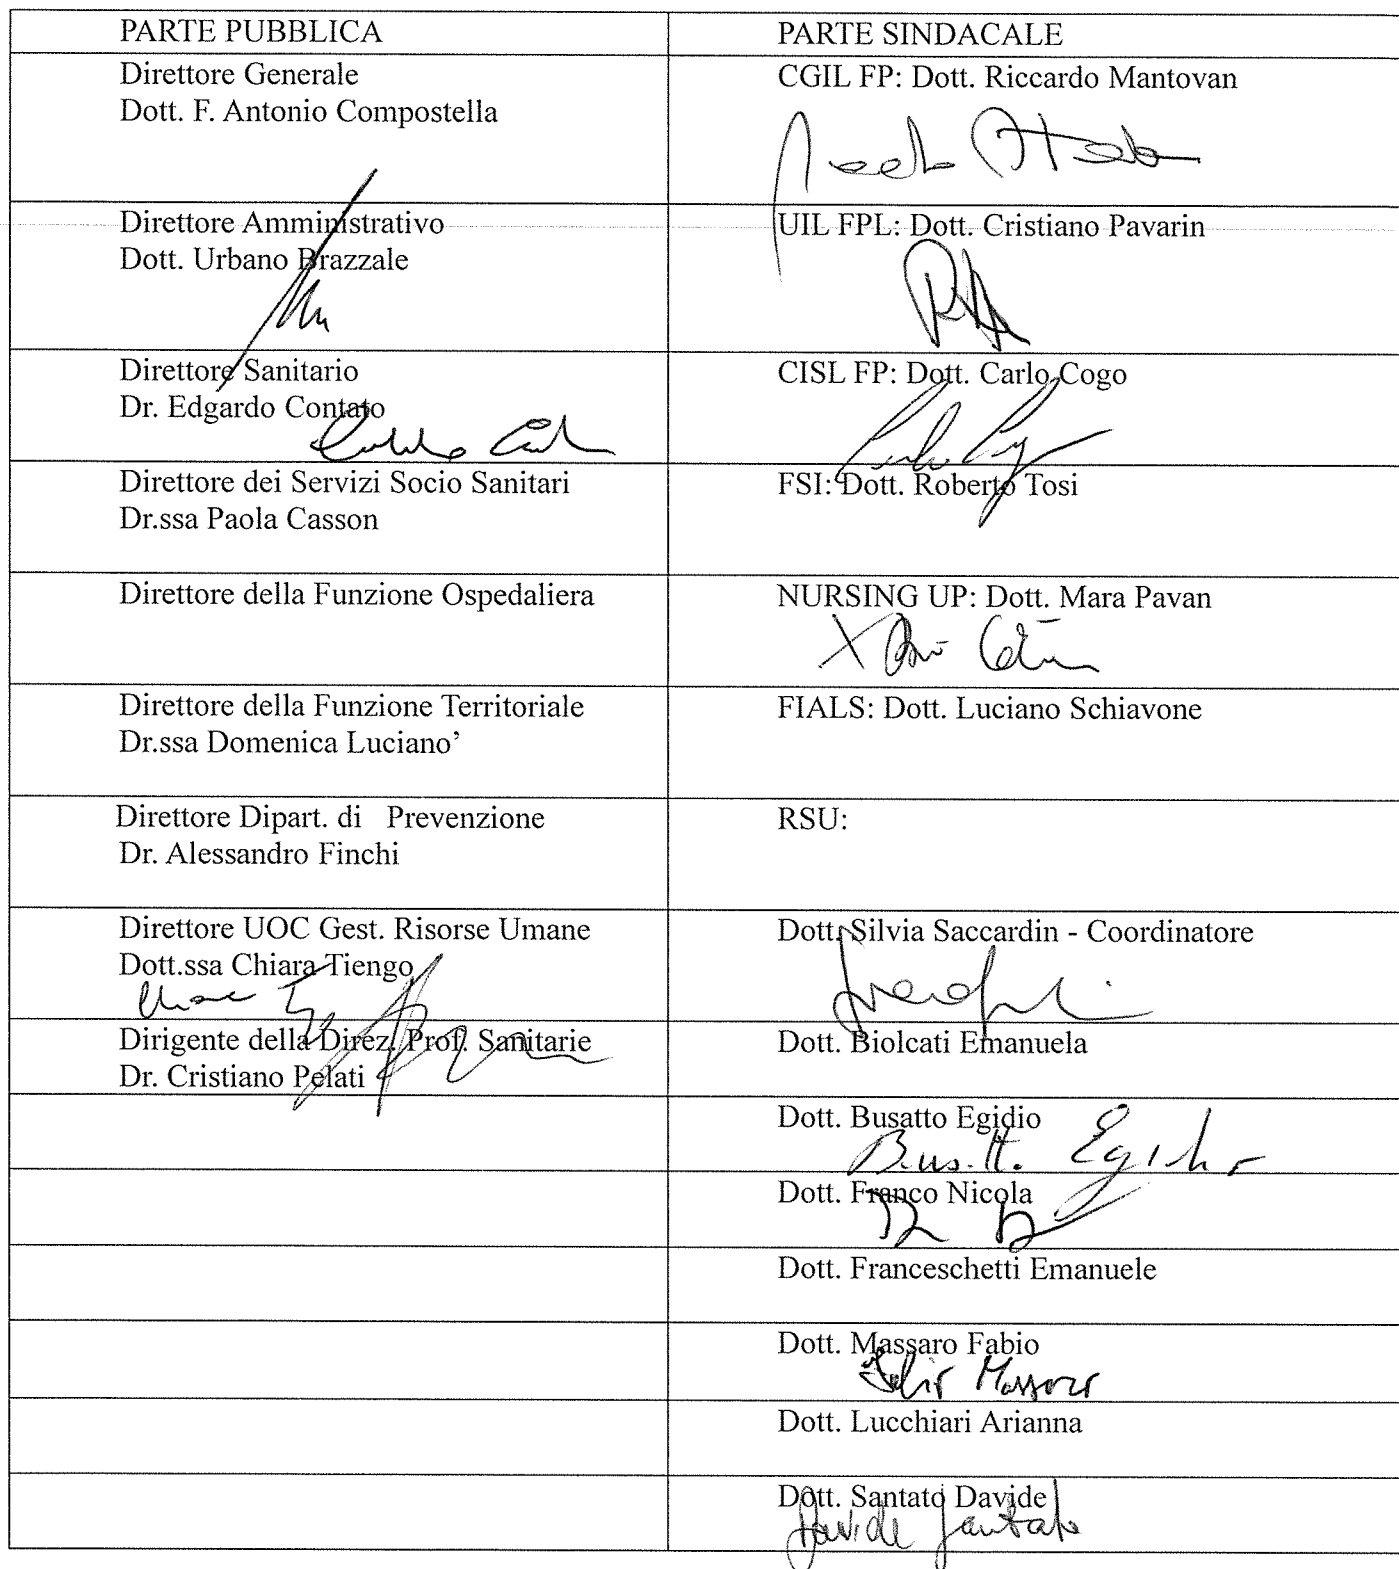 PARTE PUBBLICA
PARTE SINDACALE
Direttore Generale
Dott. F. Antonio Compostella
CGIL FP: Dott. Riccardo Mantovan
Direttore Amministrativo
Dott. Urbano Brazzale
UIL FPL: Dott. Cristiano Pavarin
Direttore Sanitario
Dr. Edgardo Contato
CISL FP: Dott. Carlo Cogo
Direttore dei Servizi Socio Sanitari
Dr.ssa Paola Casson
FSI: Dott. Roberto Tosi
Direttore della Funzione Ospedaliera
NURSING UP: Dott. Mara Pavan
Direttore della Funzione Territoriale
Dr.ssa Domenica Luciano’
FIALS: Dott. Luciano Schiavone
Direttore Dipart. di Prevenzione
Dr. Alessandro Finchi
RSU:
Direttore UOC Gest. Risorse Umane
Dott.ssa Chiara Tiengo
Dott. Silvia Saccardin - Coordinatore
Dirigente della Direz. Prof. Sanitarie
Dr. Cristiano Pelati
Dott. Biolcati Emanuela
Dott. Busatto Egidio
Dott. Franco Nicola
Dott. Franceschetti Emanuele
Dott. Massaro Fabio
Fabio Massaro
Dott. Lucchiari Arianna
Dott. Santato Davide
Davide Santato